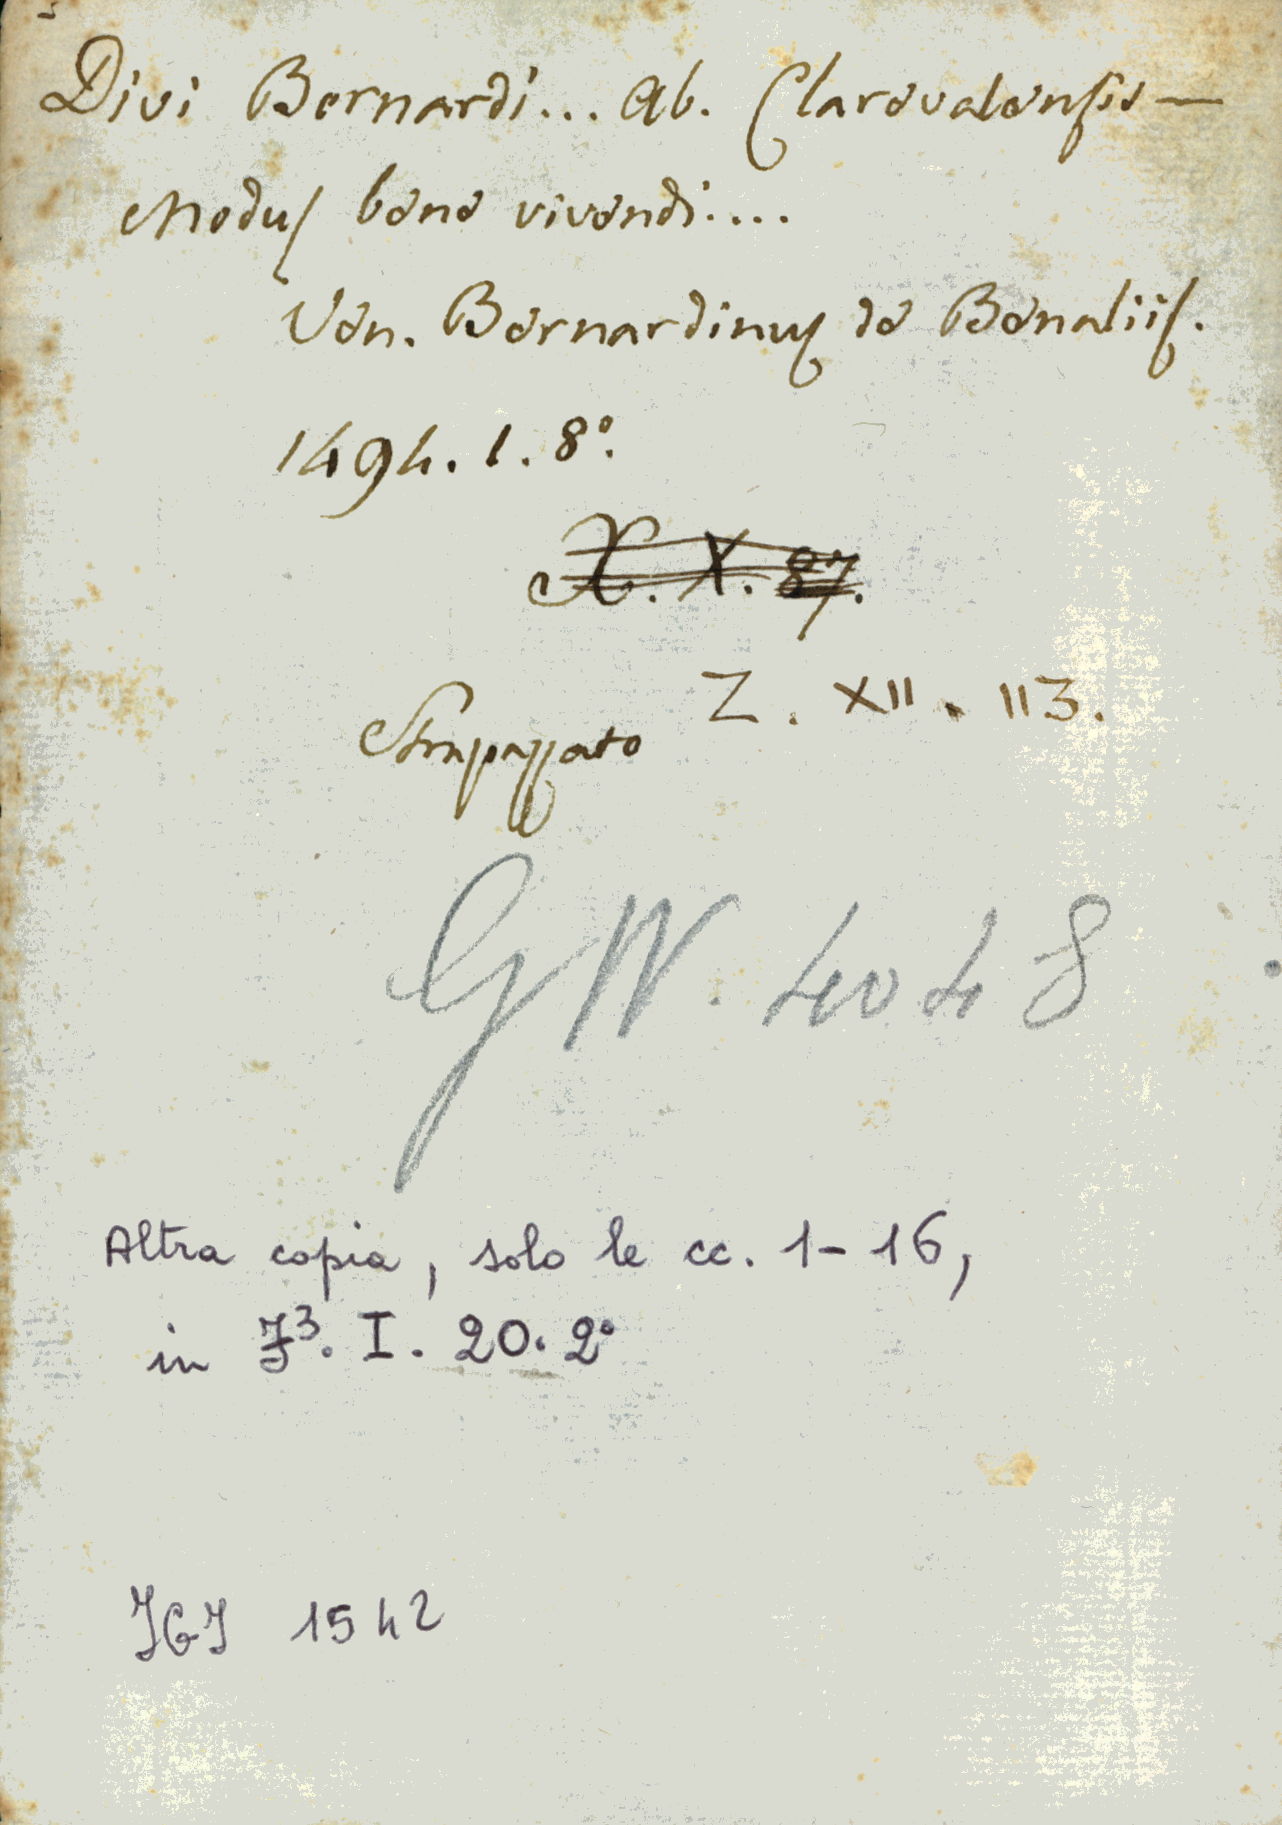 Divi Bernardi... Ab. Clarevalensis —
Modus bene vivendi....
Ven. Bernardinus de Benaliis.
1494. 1. 8°.
X. X. 87.
Z. XII. 113.
Strapazzato
GW. 4048
Altra copia, solo le cc. 1-16,
in F³. I. 20. 2°
IGI 1542